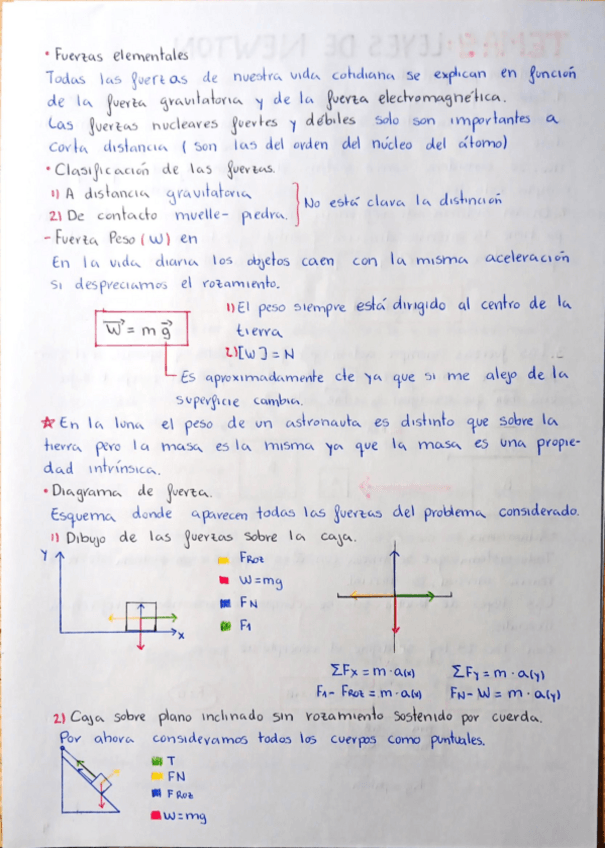 • Fuerzas elementales
Todas las fuerzas de nuestra vida cotidiana se explican en función
de la fuerza gravitatoria y de la fuerza electromagnética.
Las fuerzas nucleares fuertes y débiles solo son importantes a
corta distancia (son las del orden del núcleo del átomo)
• Clasificación de las fuerzas.
1) A distancia gravitatoria
2) De contacto muelle- piedra.
No está clava la distinción
- Fuerza Peso (W) en
En la vida diaria los objetos caen con la misma aceleración
si despreciamos el rozamiento.
W⃗ = m g⃗
1) El peso siempre está dirigido al centro de la
tierra
2) [W] = N
Es aproximadamente cte ya que si me alejo de la
superficie cambia.
☆ En la luna el peso de un astronauta es distinto que sobre la
tierra pero la masa es la misma ya que la masa es una propie-
dad intrínsica.
• Diagrama de fuerza.
Esquema donde aparecen todas las fuerzas del problema considerado.
1) Dibujo de las fuerzas sobre la caja.
Y
x
FRoz
W=mg
FN
F1
ΣFx = m · a(x)
F1 - FRoz = m · a(x)
ΣFy = m · a(y)
FN - W = m · a(y)
2) Caja sobre plano inclinado sin rozamiento sostenido por cuerda.
Por ahora consideramos todos los cuerpos como puntuales.
T
FN
FRoz
W=mg